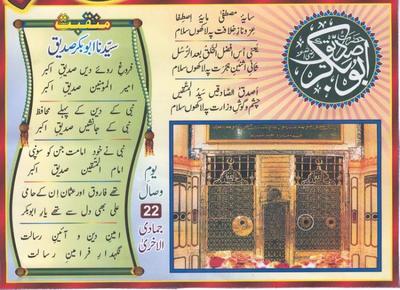 منقبت
سیّدنا ابوبکر صدیق
فروغِ روئے دیں صدیقِ اکبر
امیر المؤمنین صدیقِ اکبر
نبی کے دین کے پہلے محافظ
نبی کے جانشیں صدیقِ اکبر
نبی نے خود امامت جن کو سونپی
امام المتّقین صدیقِ اکبر
تھے فاروق اور عثماں ان کے حامی
علی بھی دل سے تھے یارِ ابوبکر
امینِ دین و آئینِ رسالت
نگہدارِ فرامینِ رسالت
سایۂ مصطفیٰ مایۂ اصطفا
عزّ و نازِ خلافت پہ لاکھوں سلام
یعنی اُس افضل الخلق بعد الرسل
ثانی اثنین ہجرت پہ لاکھوں سلام
اصدق الصادقین سیّد المتقین
چشم و گوشِ وزارت پہ لاکھوں سلام
ابوبکر صدیق
یومِ
وصال
22
جمادی
الاخریٰ